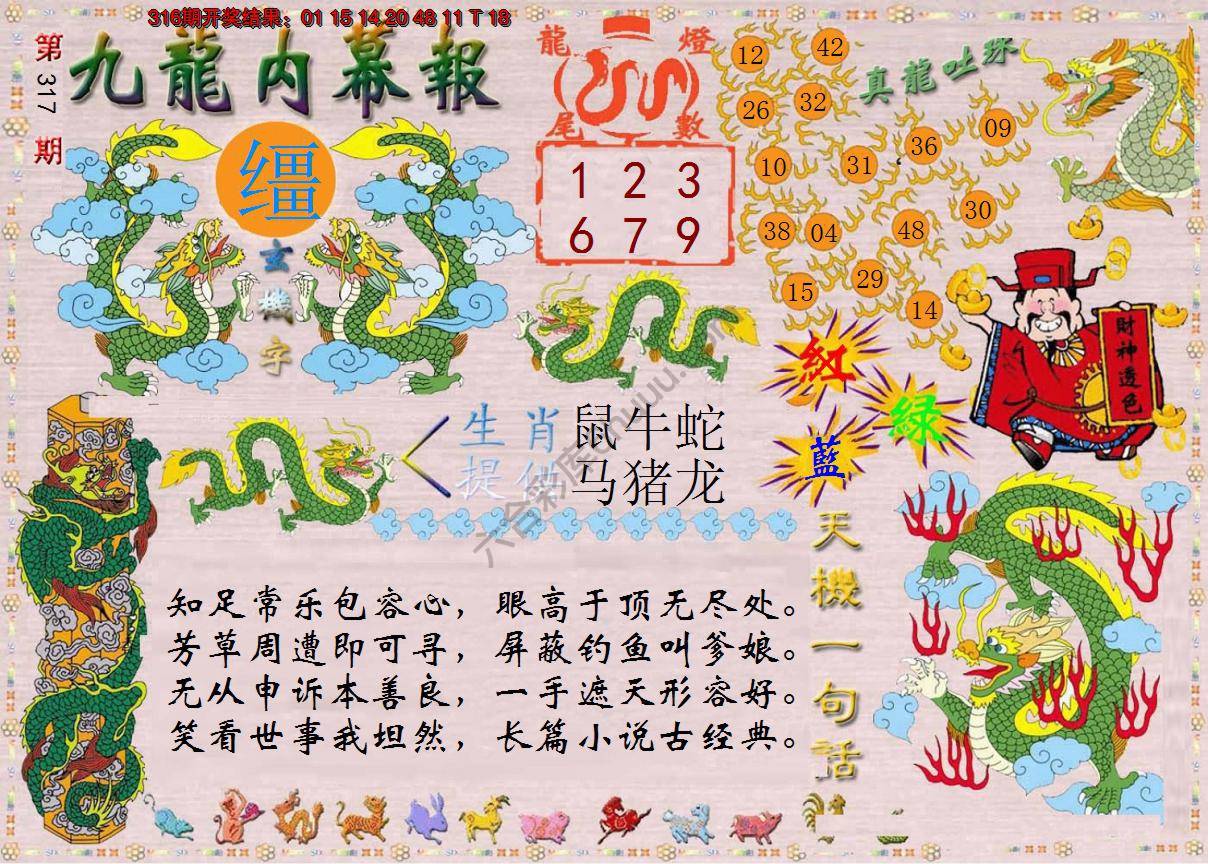 316期开奖结果：01 15 14 20 48 11 T 18
第317期
九龍内幕報
缰
玄機字
龍燈尾數
1 2 3
6 7 9
真龍吐珠
12 42
26 32
36 09
10 31
38 04 48 30
15 29 14
財神透色
紅
綠
藍
生肖提供
鼠牛蛇
马猪龙
天機一句話
知足常乐包容心，眼高于顶无尽处。
芳草周遭即可寻，屏蔽钓鱼叫爹娘。
无从申诉本善良，一手遮天形容好。
笑看世事我坦然，长篇小说古经典。